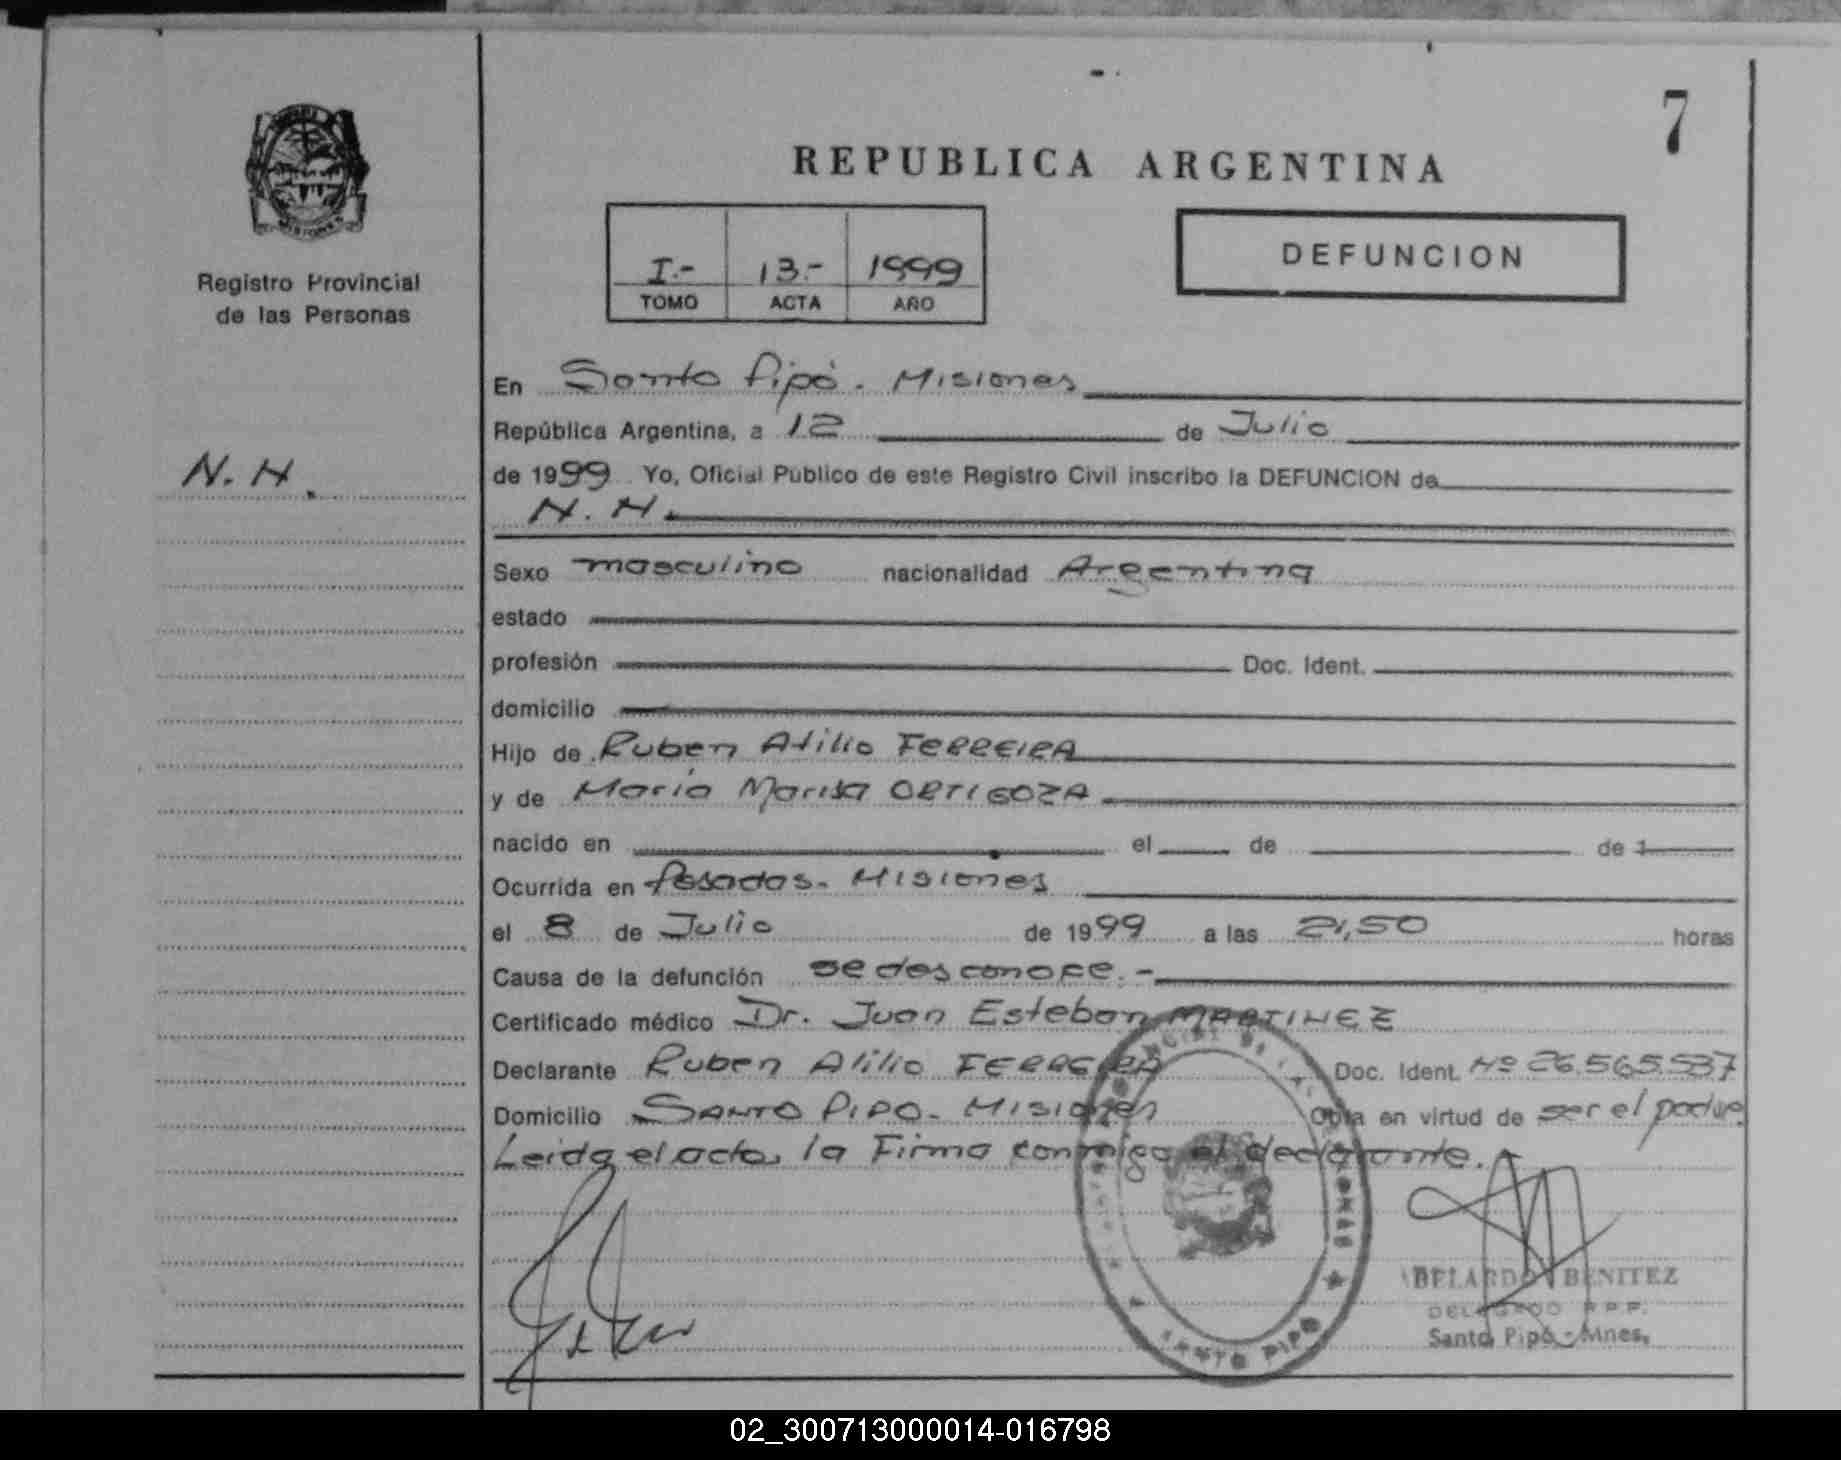 7
REPUBLICA ARGENTINA
MISIONES
Registro Provincial
de las Personas
I.- 13.- 1999
TOMO ACTA AÑO
DEFUNCION
En Santo Pipó. Misiones
República Argentina, a 12 de Julio
N.N.
de 1999 Yo, Oficial Publico de este Registro Civil inscribo la DEFUNCION de
N.N.
Sexo masculino nacionalidad Argentina
estado
profesión Doc. Ident.
domicilio
Hijo de Ruben Atilio FERREIRA
y de María Marisa ORTIGOZA
nacido en el de de 1
Ocurrida en Posadas. Misiones
el 8 de Julio de 1999 a las 21,50 horas
Causa de la defunción se desconoce.-
Certificado médico Dr. Juan Esteban MARTINEZ
Declarante Ruben Atilio FERREIRA Doc. Ident. Nº 26.565.537
Domicilio SANTO PIPO. MISIONES Obra en virtud de ser el padre.
Leida el acta, la Firma conmigo el declarante.
SANTO PIPO
ABELARDO BENITEZ
DELEGADO R.P.P.
Santo Pipó - Mnes.
02_300713000014-016798